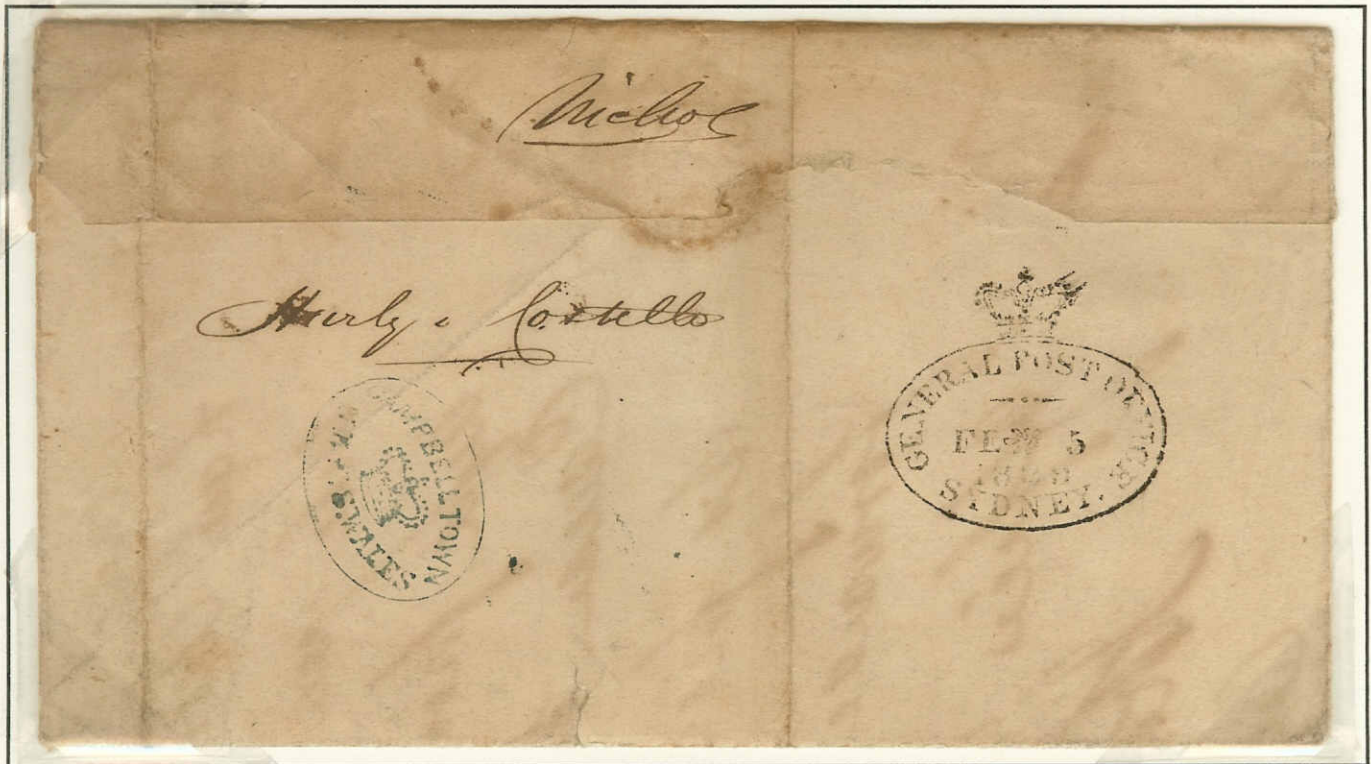 Nichol
Hurly & Costello
CAMPBELLTOWN
S. WALES
GENERAL POST OFFICE
5
SYDNEY.